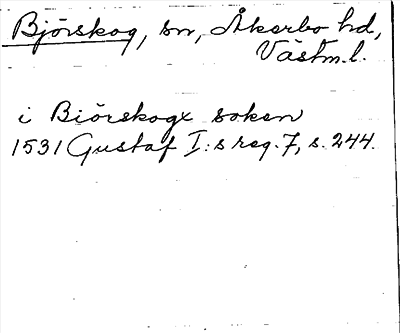 Björskog, sn, Åkerbo hd,
Västm.l.
i Biörskogx soken
1531 Gustaf I:s reg. 7, s. 244.